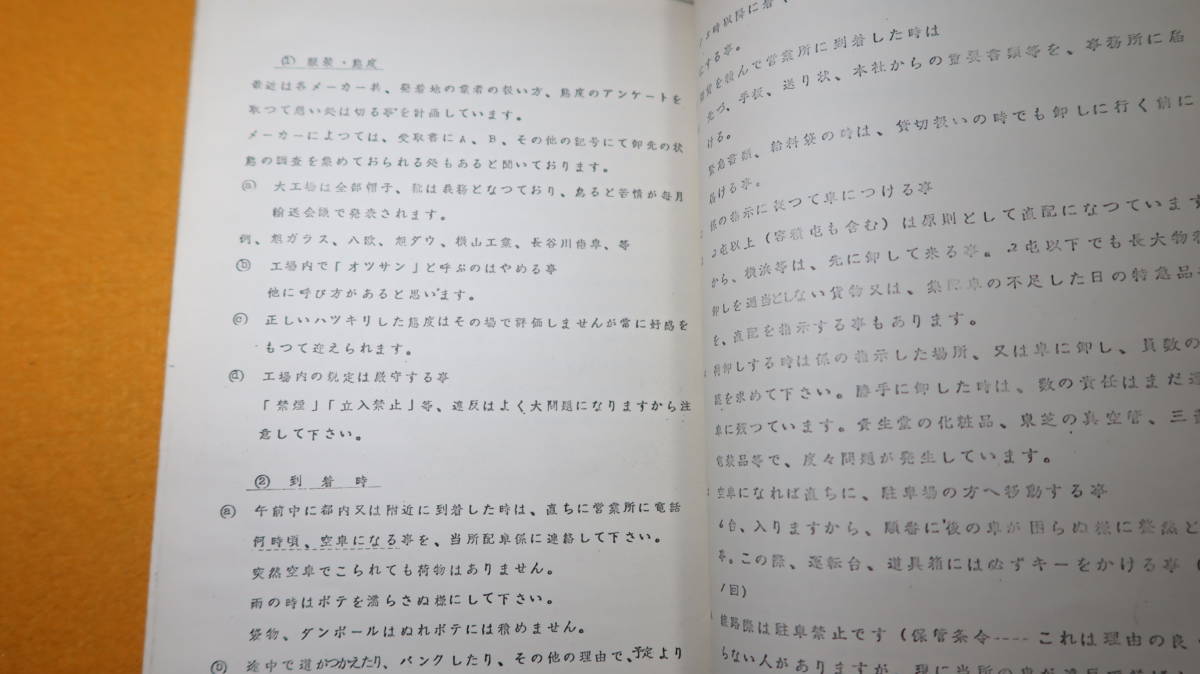 ① 服装・態度
最近は各メーカー共、発着地の業者の扱い方、態度のアンケートを
取つて悪い処は切る亭を計画しています。
メーカーによつては、受取書にA、B、その他の記号にて卸先の状
態の調査を集めておられる処もあると聞いております。
ⓐ 大工場は全部帽子、靴は義務となつており、怠ると苦情が毎月
輸送会議で発表されます。
例、旭ガラス、八欧、旭ダウ、横山工業、長谷川歯車、等
ⓑ 工場内で「オツサン」と呼ぶのはやめる亭
他に呼び方があると思います。
ⓒ 正しいハツキリした態度はその場で評価しませんが常に好感を
もつて迎えられます。
ⓓ 工場内の規定は厳守する亭
「禁煙」「立入禁止」等、違反はよく大問題になりますから注
意して下さい。
② 到着時
ⓐ 午前中に都内又は附近に到着した時は、直ちに営業所に電話
何時頃、空車になる亭を、当所配車係に連絡して下さい。
突然空車でこられても荷物はありません。
雨の時はボテを濡らさぬ様にして下さい。
袋物、ダンボールはぬれボテには積めません。
ⓑ 途中で道がつかえたり、パンクしたり、その他の理由で、予定より
時以降に着く
する亭。
を積んで営業所に到着した時は
先づ、手板、送り状、本社からの重要書類等を、亭務所に届
ける。
緊急書類、給料袋の時は、貸切扱いの時でも卸しに行く前に
届ける亭。
係の指示に従つて車につける亭
2屯以上（容積屯も含む）は原則として直配になつています
から、横浜等は、先に卸して来る亭。2屯以下でも長大物
卸しを適当としない貨物又は、集配車の不足した日の特急品
を、直配を指示する亭もあります。
荷卸しする時は係の指示した場所、又は車に卸し、員数の
認を求めて下さい。勝手に卸した時は、数の責任はまだ運
車に残つています。資生堂の化粧品、東芝の真空管、三
電装品等で、度々問題が発生しています。
空車になれば直ちに、駐車場の方へ移動する亭
6台、入りますから、順番に後の車が困らぬ様に整然と
亭。この際、運転台、道具箱には必ずキーをかける亭（
1回）
線路際は駐車禁止です（保管条令----これは理由の良
らない人がありますが、現に当所の車が違反で